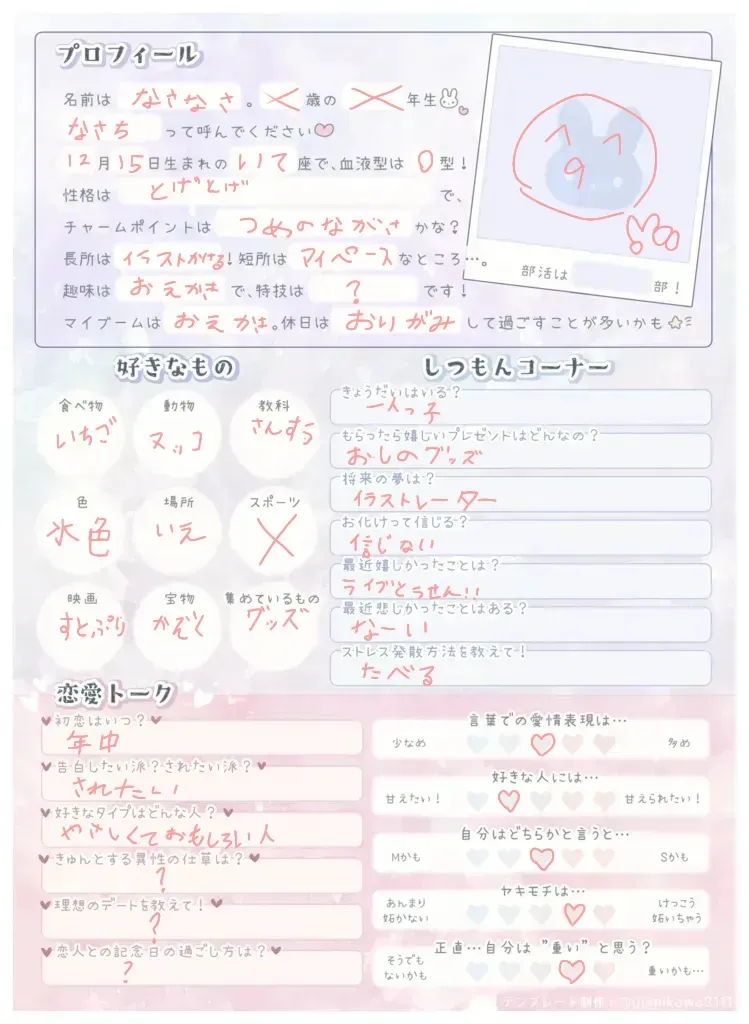 プロフィール
名前は なさなさ 。 歳の 年生
なさち って呼んでください
12月15日生まれの いて 座で、血液型は O 型!
性格は とげとげ で、
チャームポイントは つめのながさ かな?
長所は イラストかける! 短所は マイペース なところ…。
趣味は おえかき で、特技は ? です!
マイブームは おえかき。休日は おりがみ して過ごすことが多いかも
部活は 部!
好きなもの
食べ物 動物 教科
いちご ヌッコ さんすう
色 場所 スポーツ
水色 いえ ×
映画 宝物 集めているもの
すとぷり かぞく グッズ
しつもんコーナー
きょうだいはいる?
一人っ子
もらったら嬉しいプレゼントはどんなの?
おしのグッズ
将来の夢は?
イラストレーター
お化けって信じる?
信じない
最近嬉しかったことは?
ライブとうせん!!
最近悲しかったことはある?
なーい
ストレス発散方法を教えて!
たべる
恋愛トーク
初恋はいつ?
年中
告白したい派?されたい派?
されたい
好きなタイプはどんな人?
やさしくておもしろい人
きゅんとする異性の仕草は?
?
理想のデートを教えて!
?
恋人との記念日の過ごし方は?
?
言葉での愛情表現は…
少なめ 多め
好きな人には…
甘えたい! 甘えられたい!
自分はどちらかと言うと…
Mかも Sかも
ヤキモチは…
あんまり妬かない けっこう妬いちゃう
正直…自分は "重い" と思う?
そうでもないかも 重いかも…
テンプレート制作